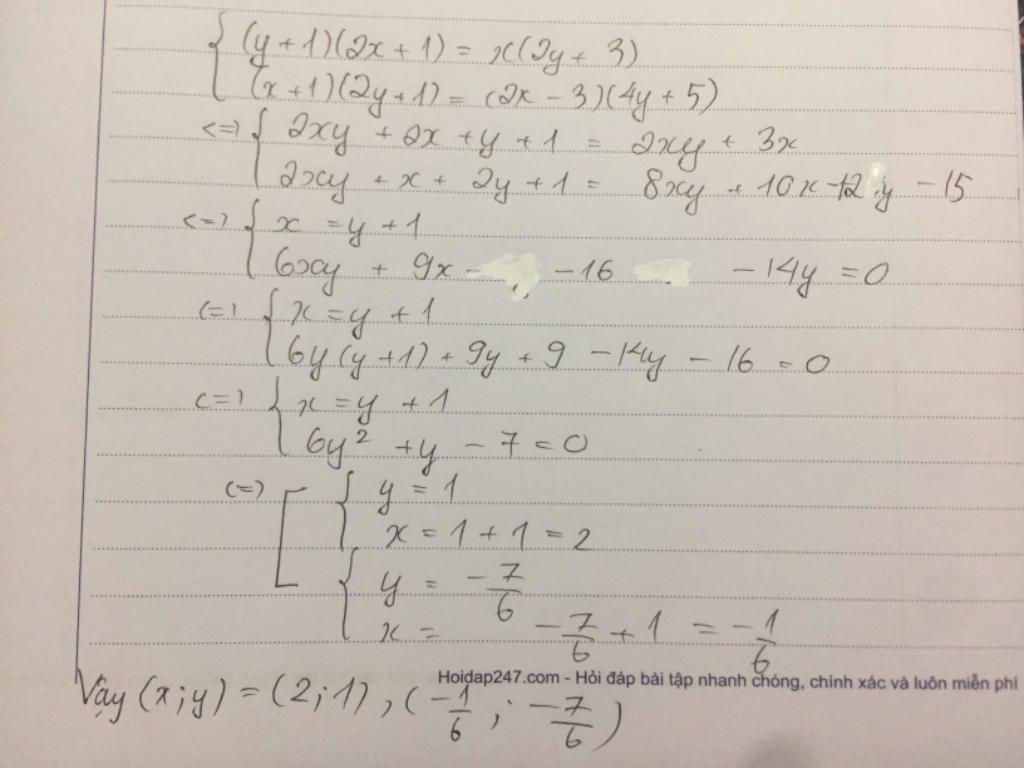 { (y + 1)(2x + 1) = x(2y + 3)
(x + 1)(2y + 1) = (2x - 3)(4y + 5)
<=> { 2xy + 2x + y + 1 = 2xy + 3x
2xy + x + 2y + 1 = 8xy + 10x - 12y - 15
<=> { x = y + 1
6xy + 9x - 16 - 14y = 0
<=> { x = y + 1
6y(y + 1) + 9y + 9 - 14y - 16 = 0
<=> { x = y + 1
6y² + y - 7 = 0
<=> [ { y = 1
x = 1 + 1 = 2
{ y = -7/6
x = -7/6 + 1 = -1/6
Hoidap247.com - Hỏi đáp bài tập nhanh chóng, chính xác và luôn miễn phí
Vậy (x; y) = (2; 1), (-1/6; -7/6)